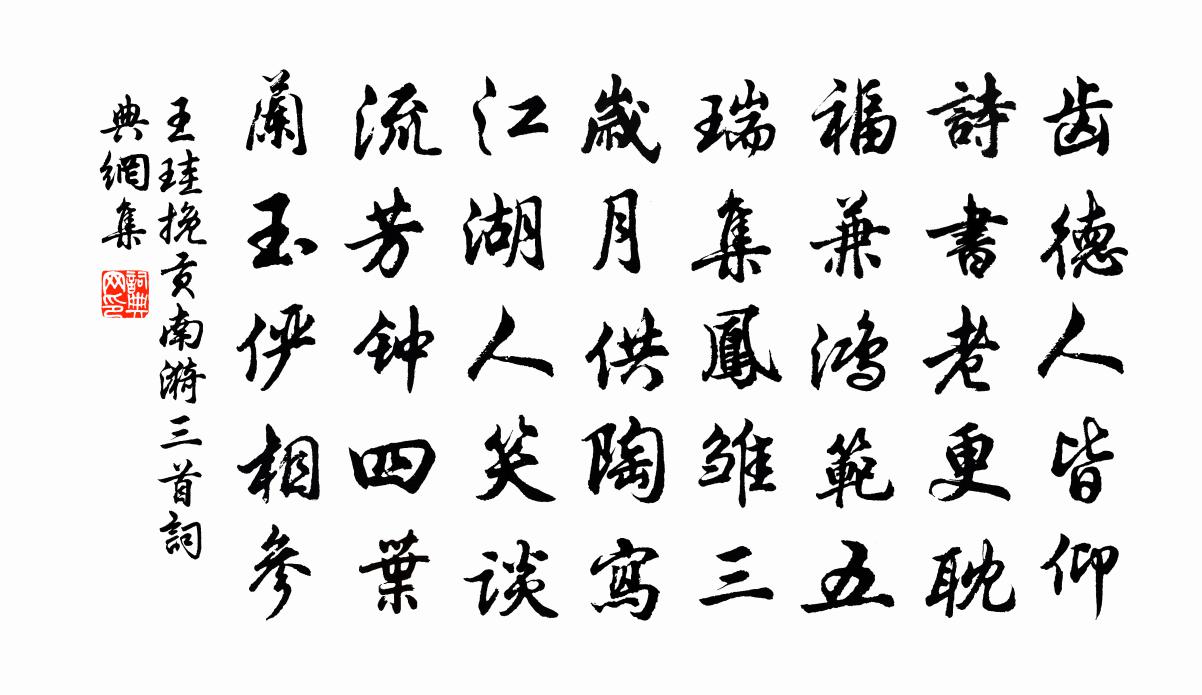 齿德人皆仰
詩書老更耽
福兼鴻範五
瑞集鳳雏三
歲月供陶寫
江湖人笑谈
流芳钟四葉
蘭玉俨相參
王珪挽贡南漪三首詞
典網集
詞典
网印